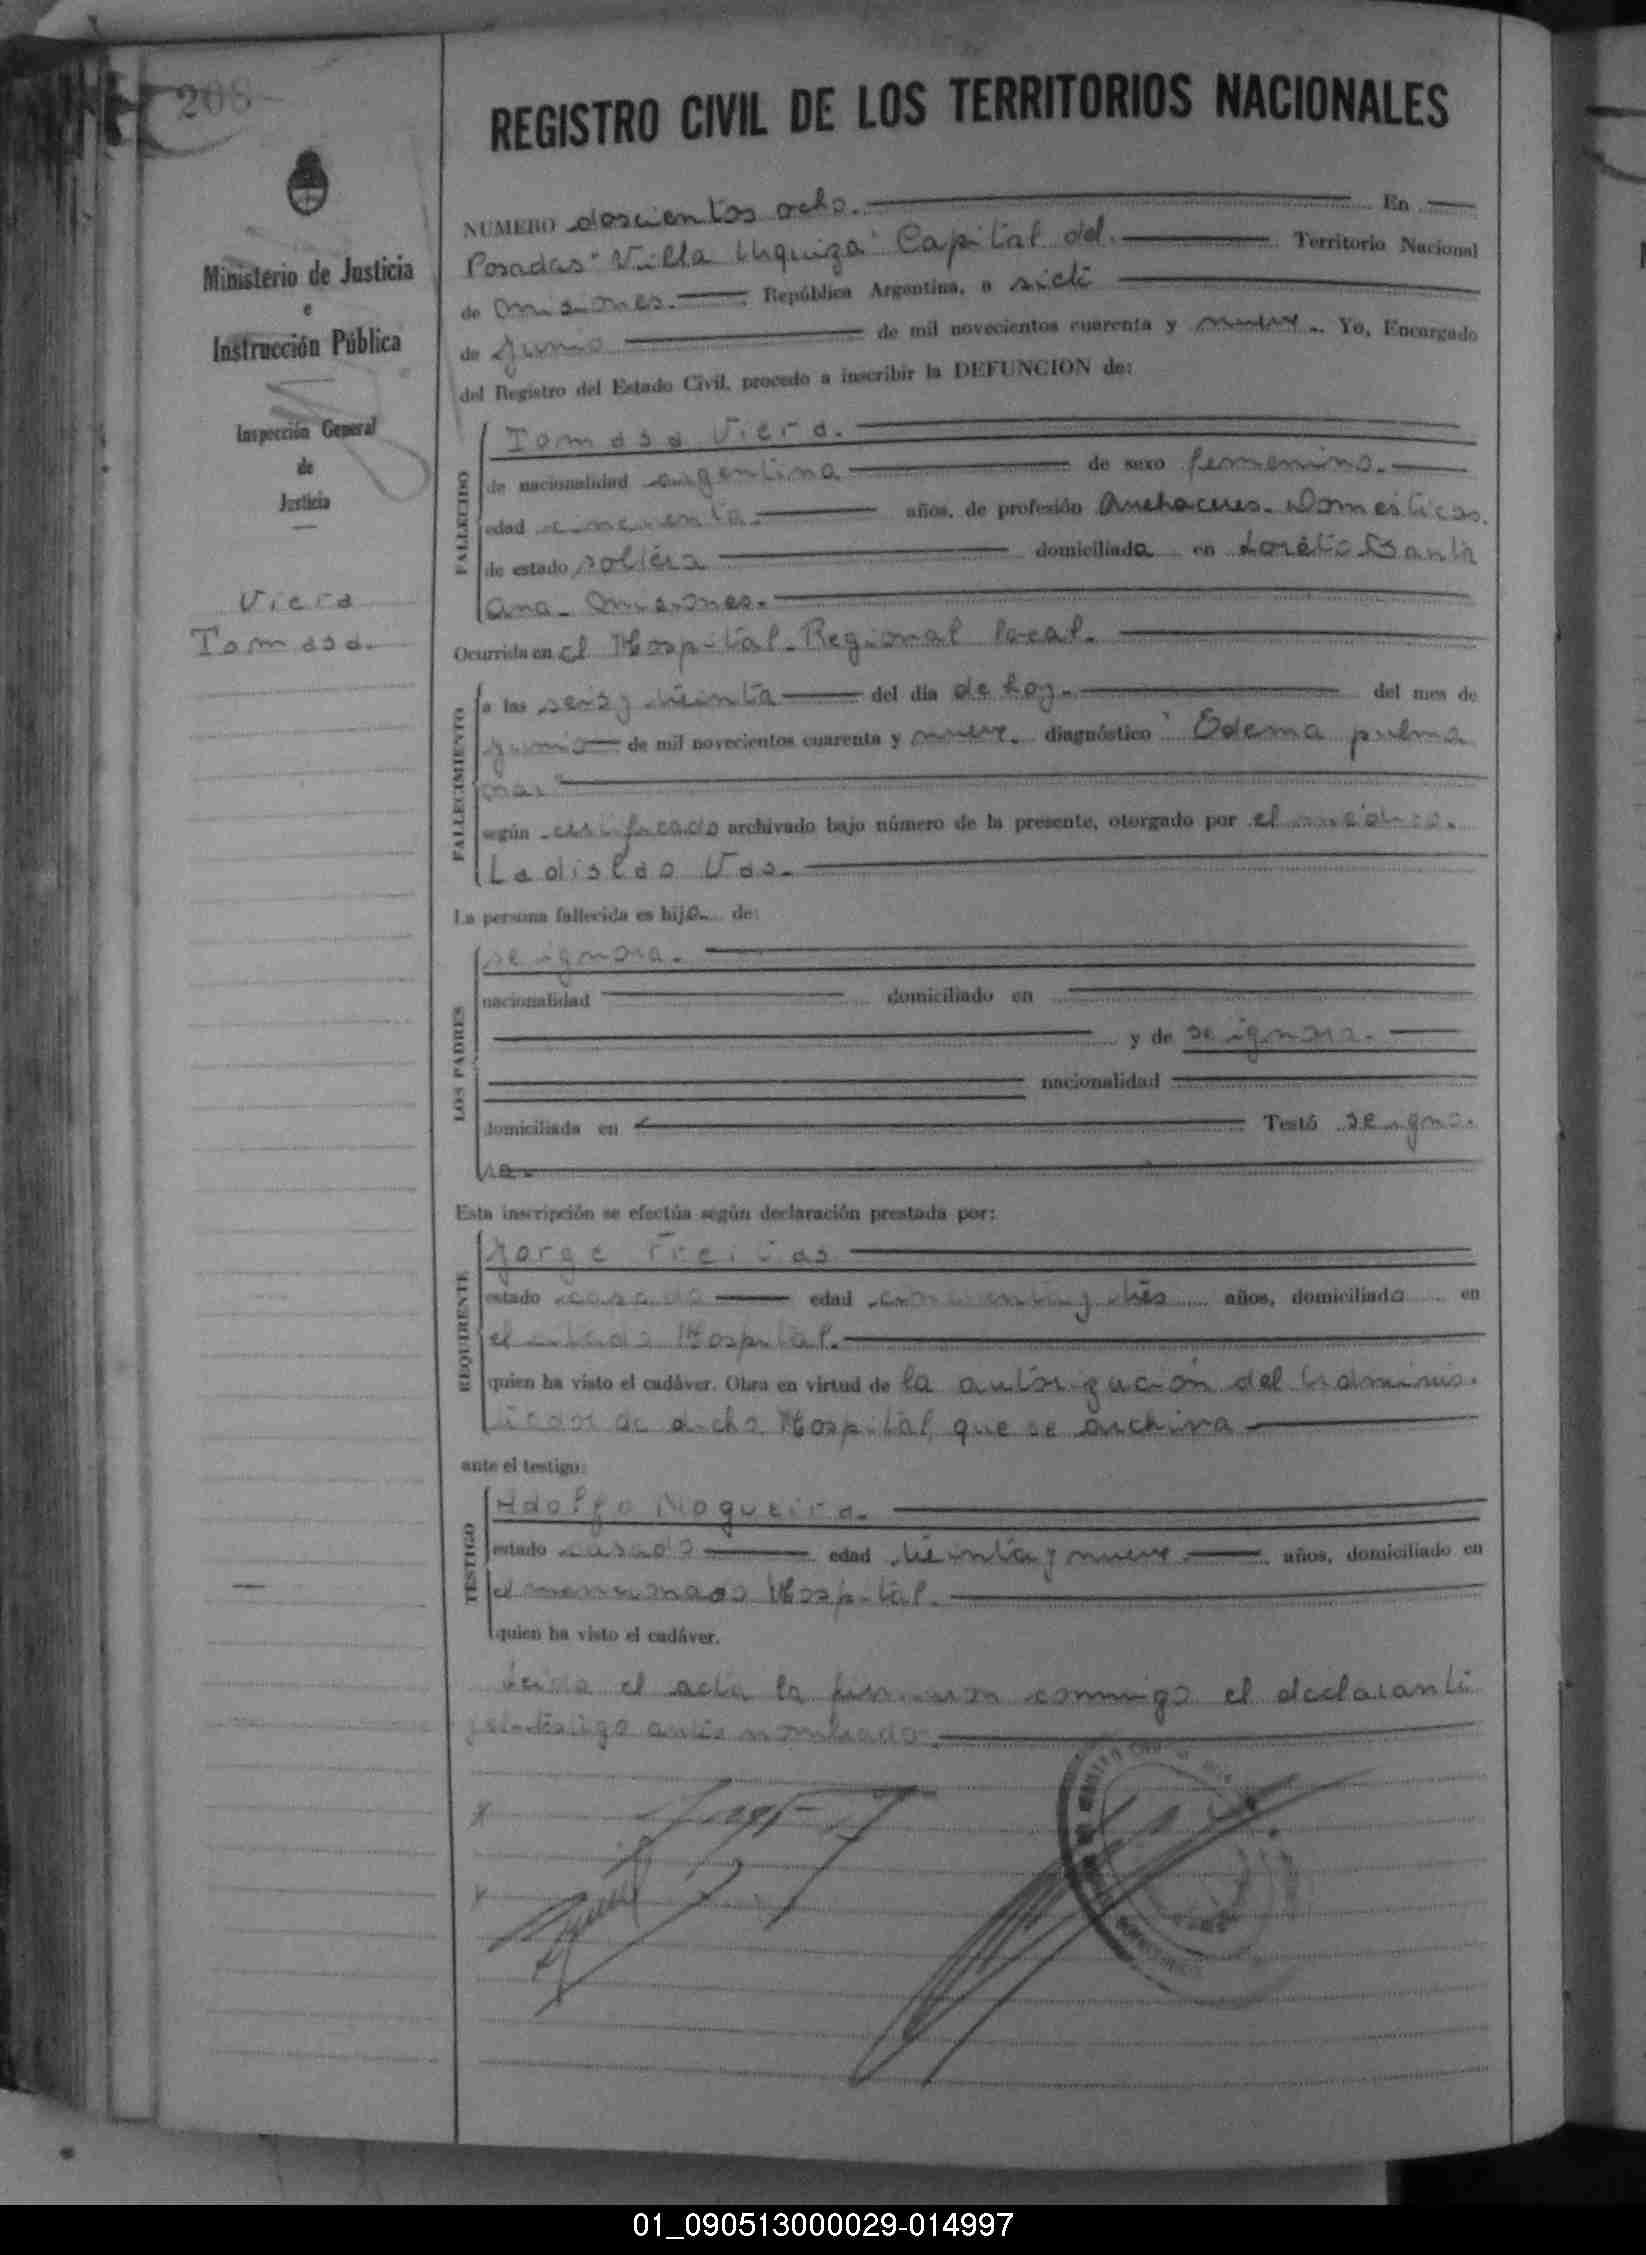 208
REGISTRO CIVIL DE LOS TERRITORIOS NACIONALES
Ministerio de Justicia
e
Instrucción Pública
Inspección General
de
Justicia
Viera
Tomasa.
NUMERO doscientos ocho. En
Posadas "Villa Urquiza" Capital del. Territorio Nacional
de Misiones. República Argentina, a siete
de Junio de mil novecientos cuarenta y nueve. Yo, Encargado
del Registro del Estado Civil, procedo a inscribir la DEFUNCION de:
FALLECIDO
Tomasa Viera.
de nacionalidad argentina de sexo femenino.
edad cincuenta. años, de profesión Quehaceres. Domésticos.
de estado soltera domiciliada en Loreto Santa
Ana. Misiones.
Ocurrida en el Hospital Regional local.
FALLECIMIENTO
a las seis y treinta del día de hoy. del mes de
junio de mil novecientos cuarenta y nueve. diagnóstico "Edema pulmo
nar"
según certificado archivado bajo número de la presente, otorgado por el médico.
Ladislao Vas.
La persona fallecida es hija de:
LOS PADRES
se ignora.
nacionalidad domiciliado en
y de se ignora.
nacionalidad
domiciliada en Testó se igno.
ra.
Esta inscripción se efectúa según declaración prestada por:
REQUIRENTE
Jorge Freitas
estado casado edad cincuenta y tres años, domiciliado en
el citado Hospital.
quien ha visto el cadáver. Obra en virtud de la autorización del Adminis.
trador de dicho Hospital, que se archiva
ante el testigo:
TESTIGO
Adolfo Nogueira.
estado casado edad treinta y nueve años, domiciliado en
el mencionado Hospital.
quien ha visto el cadáver.
Leida el acta la firmaron conmigo el declarante
y el testigo antes nombrado.
01_090513000029-014997